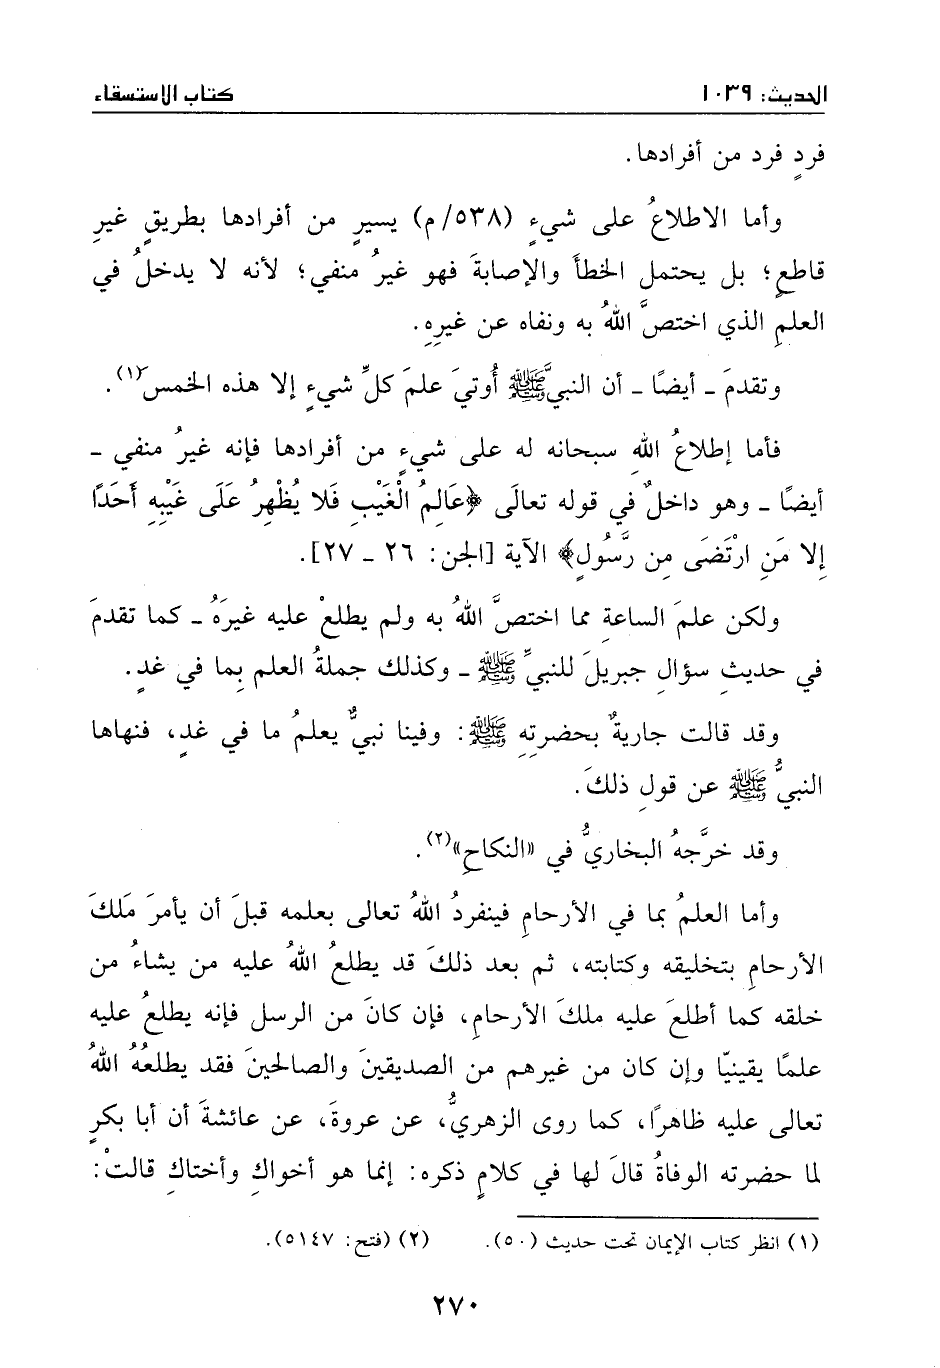 الحديث: ١٠٣٩ كتاب الاستسقاء
فردٍ فرد من أفرادها.
وأما الاطلاعُ على شيءٍ (٥٣٨/م) يسيرٍ من أفرادها بطريقٍ غيرِ
قاطعٍ؛ بل يحتمل الخطأَ والإصابةَ فهو غيرُ منفي؛ لأنه لا يدخلُ في
العلمِ الذي اختصَّ اللهُ به ونفاه عن غيرِهِ.
وتقدمَ ـ أيضًا ـ أن النبيَّ ﷺ أُوتيَ علمَ كلِّ شيءٍ إلا هذه الخمسَ(١).
فأما إطلاعُ اللهِ سبحانه له على شيءٍ من أفرادها فإنه غيرُ منفي ـ
أيضًا ـ وهو داخلٌ في قوله تعالَى ﴿عَالِمُ الْغَيْبِ فَلا يُظْهِرُ عَلَى غَيْبِهِ أَحَدًا
إِلا مَنِ ارْتَضَى مِن رَّسُولٍ﴾ الآية [الجن: ٢٦ ـ ٢٧].
ولكن علمَ الساعةِ مما اختصَّ اللهُ به ولم يطلعْ عليه غيرَهُ ـ كما تقدمَ
في حديثِ سؤالِ جبريلَ للنبيِّ ﷺ ـ وكذلك جملةُ العلم بِما في غدٍ.
وقد قالت جاريةٌ بحضرتِهِ ﷺ: وفينا نبيٌّ يعلمُ ما في غدٍ، فنهاها
النبيُّ ﷺ عن قولِ ذلكَ.
وقد خرَّجهُ البخاريُّ في «النكاحِ»(٢).
وأما العلمُ بما في الأرحامِ فينفردُ اللهُ تعالى بعلمه قبلَ أن يأمرَ مَلَكَ
الأرحامِ بتخليقه وكتابته، ثم بعد ذلكَ قد يطلعُ اللهُ عليه من يشاءُ من
خلقه كما أطلعَ عليه ملكَ الأرحامِ، فإن كانَ من الرسل فإنه يطلعُ عليه
علمًا يقينيًّا وإن كان من غيرهم من الصديقينَ والصالحينَ فقد يطلعُهُ اللهُ
تعالى عليه ظاهرًا، كما روى الزهريُّ، عن عروةَ، عن عائشةَ أن أبا بكرٍ
لما حضرته الوفاةُ قالَ لها في كلامٍ ذكره: إنما هو أخواكِ وأختاكِ قالتْ:
(١) انظر كتاب الإيمان تحت حديث (٥٠). (٢) (فتح: ٥١٤٧).
٢٧٠